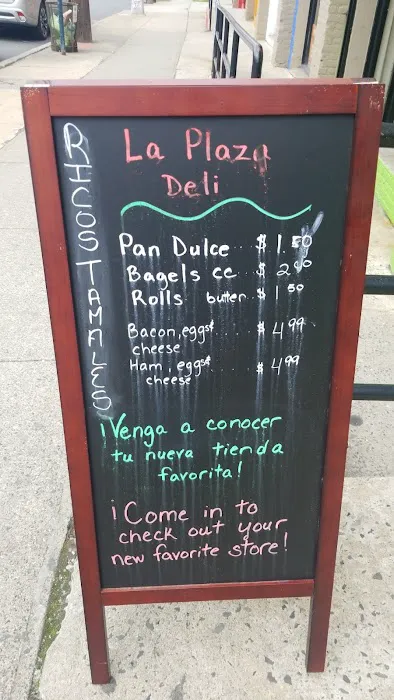 RICOS TAMALES
La Plaza
Deli
Pan Dulce.. $ 1.50
Bagels cc.. $ 2.00
Rolls butter.. $ 1.50
Bacon, eggs & .... $ 4.99
cheese
Ham, eggs & .... $ 4.99
cheese
¡Venga a conocer
tu nueva tienda
favorita!
¡Come in to
check out your
new favorite store!